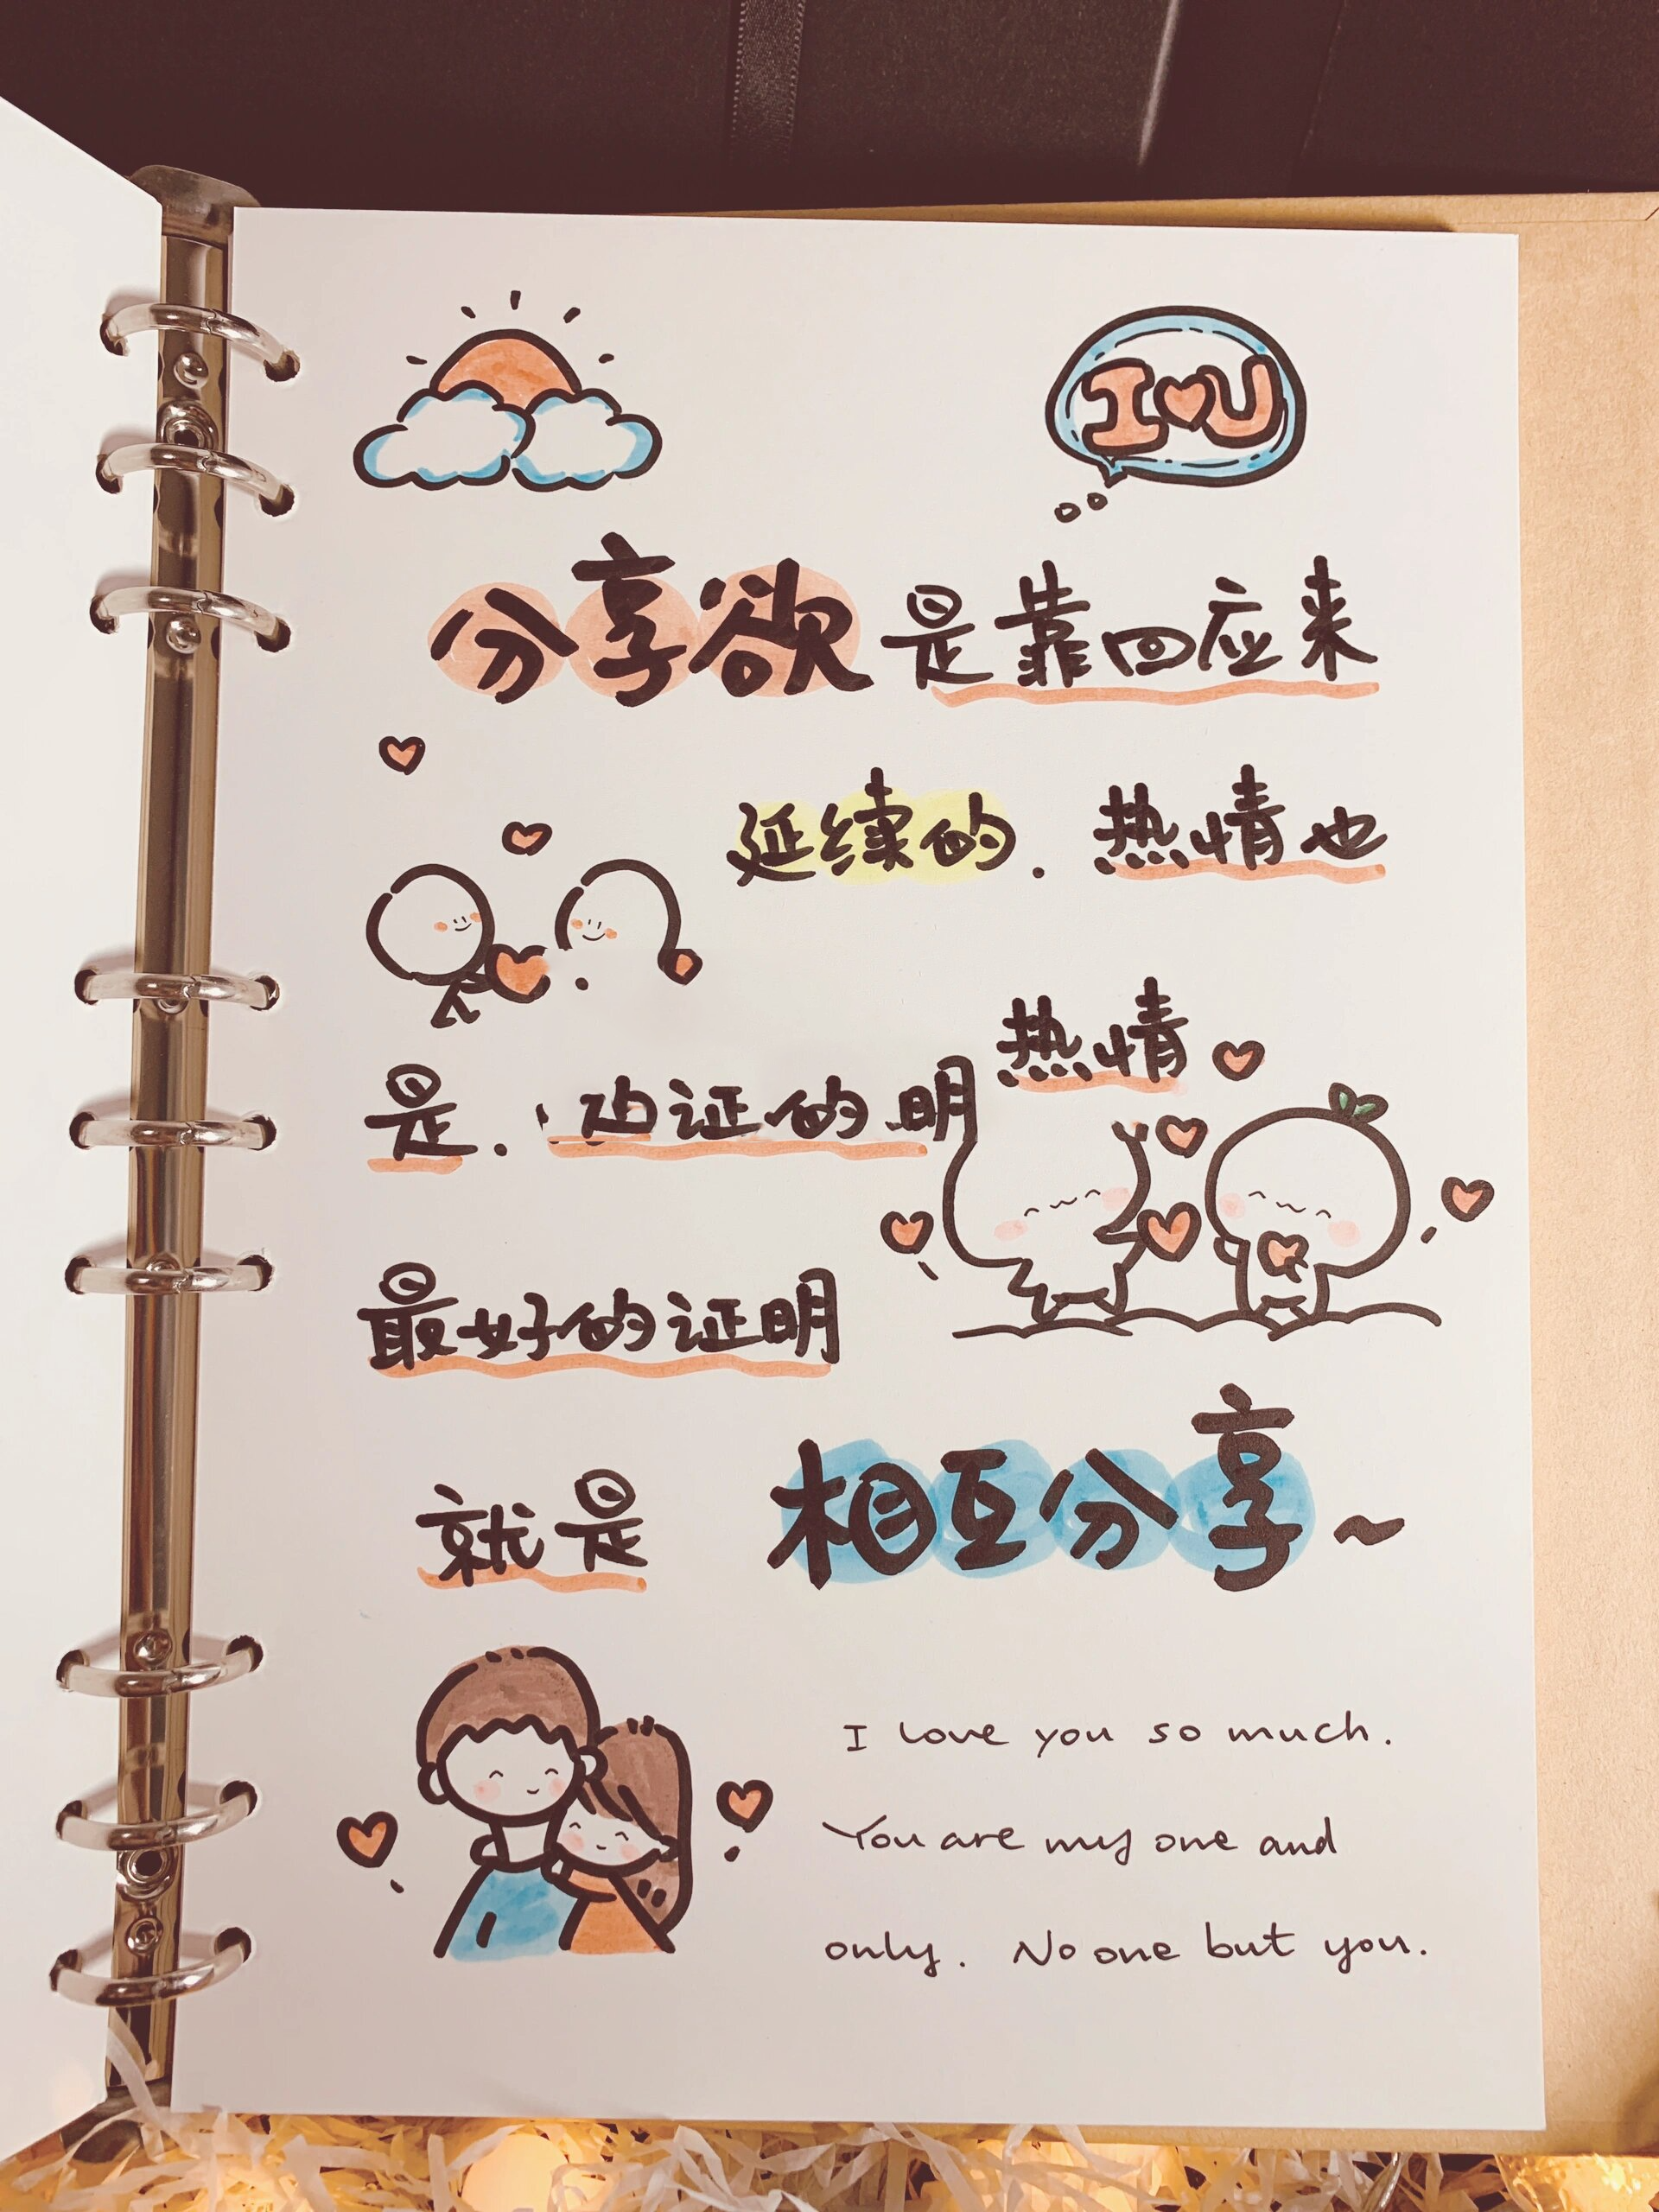 I♥U
分享欲是靠回应来
延续的.热情也
热情
是.证的明
最好的证明
就是 相互分享~
I love you so much.
You are my one and
only. No one but you.